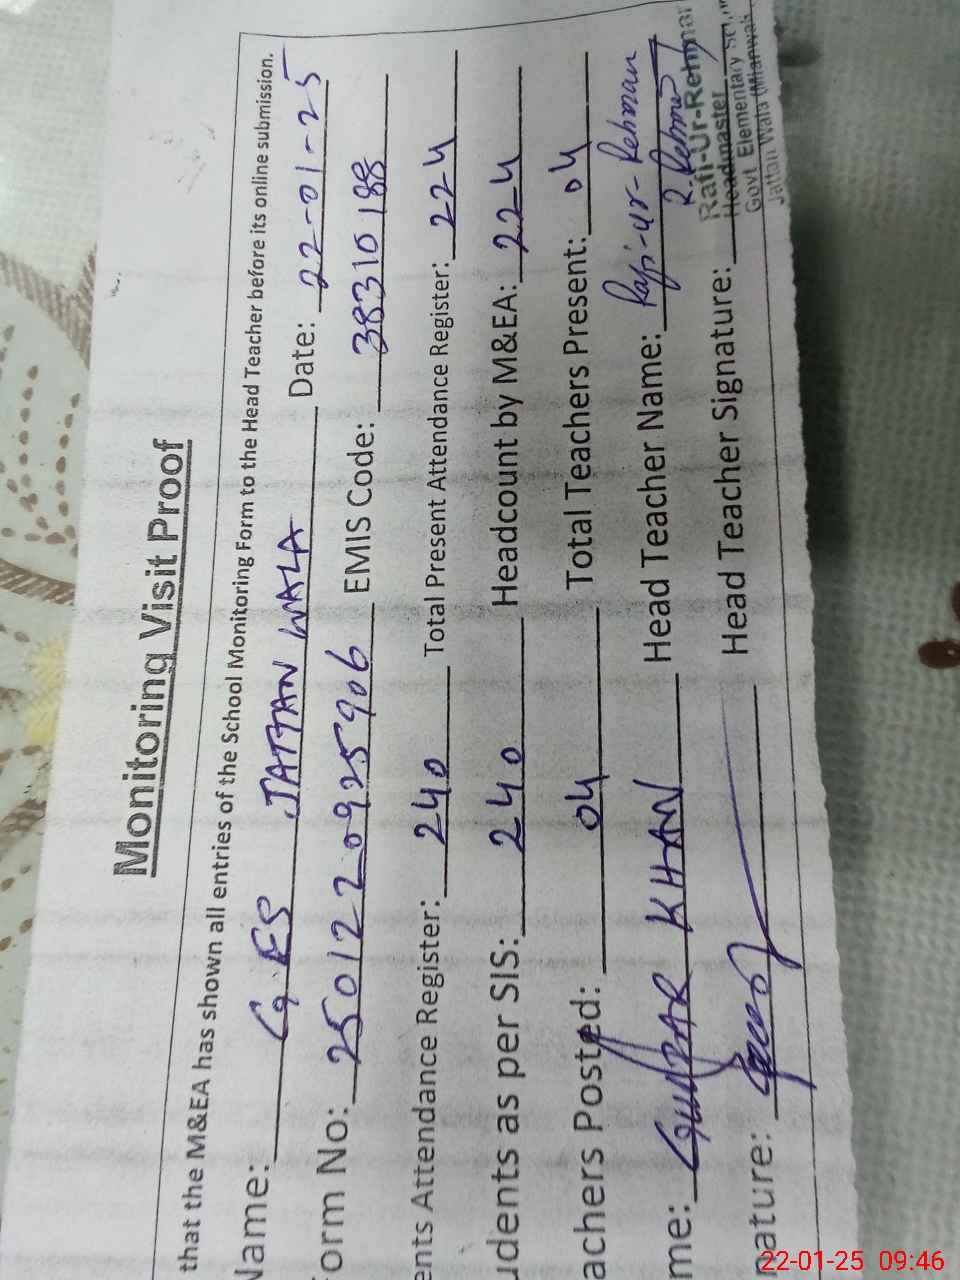 Monitoring Visit Proof
that the M&EA has shown all entries of the School Monitoring Form to the Head Teacher before its online submission.
Name: GES JATTAN WALA Date: 22-01-25
Form No: 2501220925906 EMIS Code: 38310188
ents Attendance Register: 240 Total Present Attendance Register: 224
udents as per SIS: 240 Headcount by M&EA: 224
achers Posted: 04 Total Teachers Present: 04
me: KHAN Head Teacher Name: Rafi-ur-Rehman
nature: Head Teacher Signature: R. Rehman
Rafi-Ur-Rehman
Headmaster
Govt. Elementary
Jattan Wala (Mianwali
22-01-25 09:46